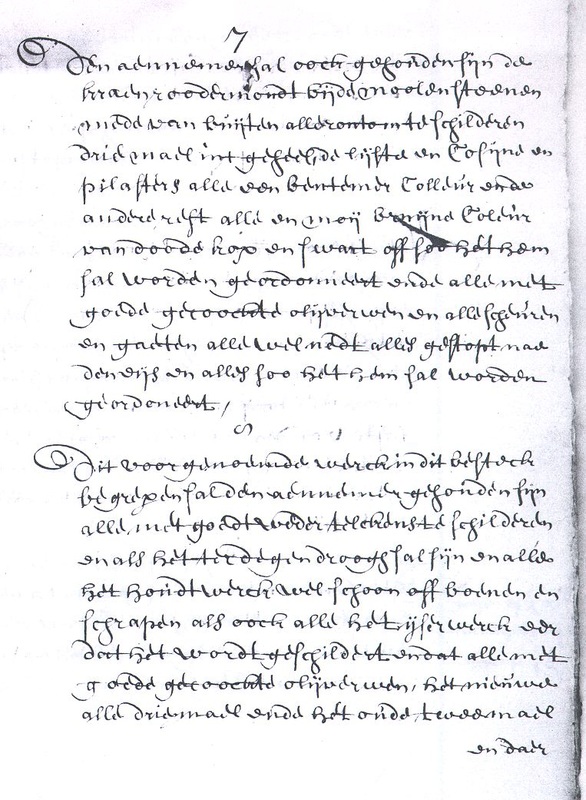 7
Den aennemer sal oock gehouden sijn de
kraen rondermondt bijde moolensteenen
mede van buijten alle rontomte schilderen
driemael int geheel de lijste en Cosijne en
pilasters alle een bentemer Colleur ende
andere rest alle en moij bruijne Coleur
van doode kop en swart off soo het hem
sal worden geordonneert ende alle met
goede gecoockte olijverwen en alle scheuren
en gaeten alle wel nedt alles gestopt nae
den eijs en alles soo het hem sal worden
geordoneert /
8
Dit voorgenoemde werck in dit besteck
begrepen sal den aennemer gehouden sijn
alle met goedt weder telckens te schilderen
en als het ter degen droogh sal sijn en alle
het houdtwerck wel schoon off boenen en
schrapen als oock alle het ijserwerck eer
dat het wordt geschildert en dat alle met
goede gecoockte olijverwen, het nieuwe
alle driemael ende het oude tweemael
en daer